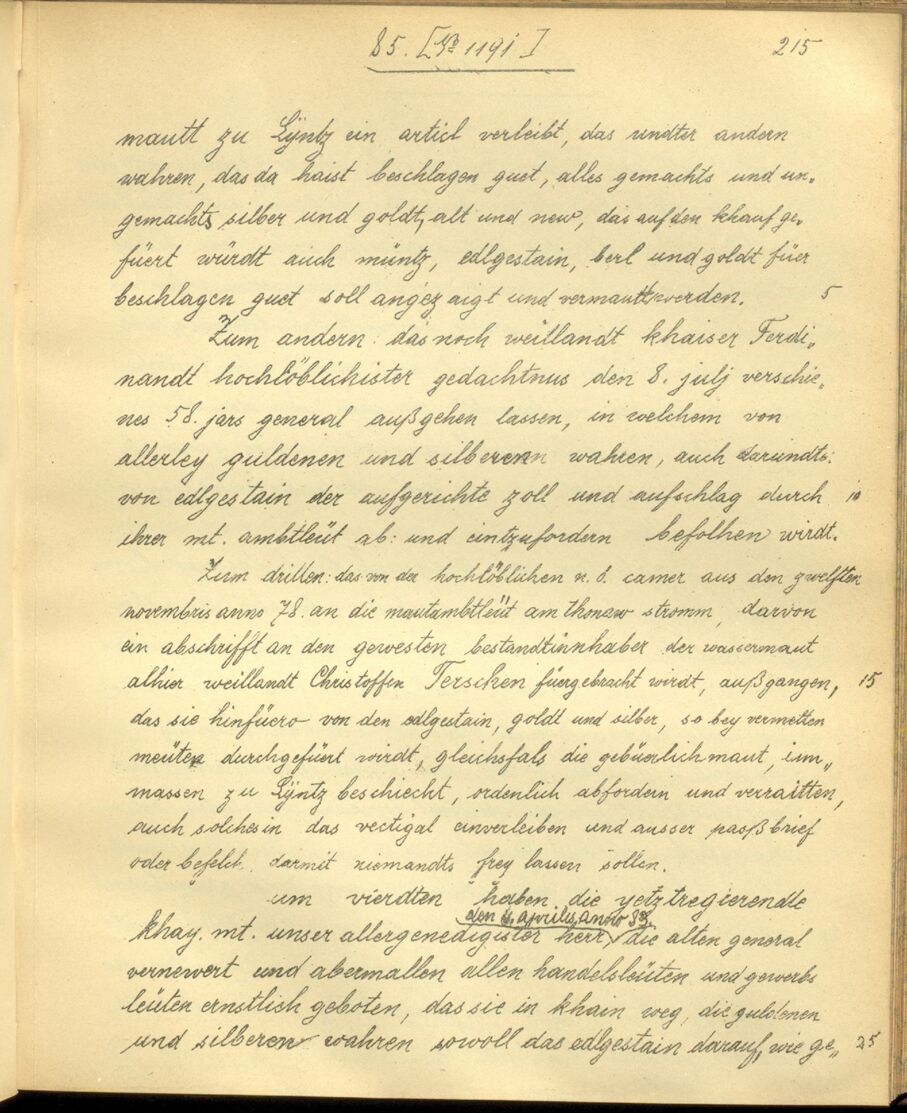 85. [No 1191]
215
mautt zu Lÿntz ein articl verleibt, das undter andern
wahren, das da haist beschlagen guet, alles gemachts und un„
gemachts silber und goldt, alt und new, das auf den khauf ge„
füert würdt auch müntz, edlgestain, berl und goldt füer
beschlagen guet soll angezaigt und vermautt werden. 5
Zum andern: das noch weitlandt khaiser Ferdi„
nandt hochlöblichister gedachtnus den 8. julj verschie„
nes 58. jars general außgehen lassen, in welchem von
allerley guldenen und silberenn wahren, auch darundte:
von edlgestain der aufgerichte zoll und aufschlag durch 10
ihrer mt. ambtleüt ab: und eintzufordern befolhen wirdt.
Zum dritten: das von der hochlöblichen n. ö. camer aus den zwelften
novembris anno 78. an die mautambtleüt am thonaw stromm, darvon
ein abschrifft an den gewesten bestandtinnhaber der wassermaut
alhier weillandt Christoffen Terschen füergebracht wirdt, außgangen, 15
das sie hinfüero von den edlgestain, goldt und silber, so bey vermelten
meüten durchgefüert wirdt, gleichsfals die gebüerlich maut, im„
massen zu Lÿntz beschiecht, ordenlich abfordern und verraitten,
auch solches in das vectigal einverleiben und ausser paßbrief
oder befelch darmit niemandts frey lassen sollen.
um vierdten haben die yetztregierendte
den 4. aprilis anno 83.
khay. mt. unser allergenedigister herr die alten general
vernewert und abermallen allen handelsleüten und gewerbs
leüten ernstlich geboten, das sie in khain weg, die guldenen
und silberen wahren sowoll das edlgestain darauf, wie ge„ 25